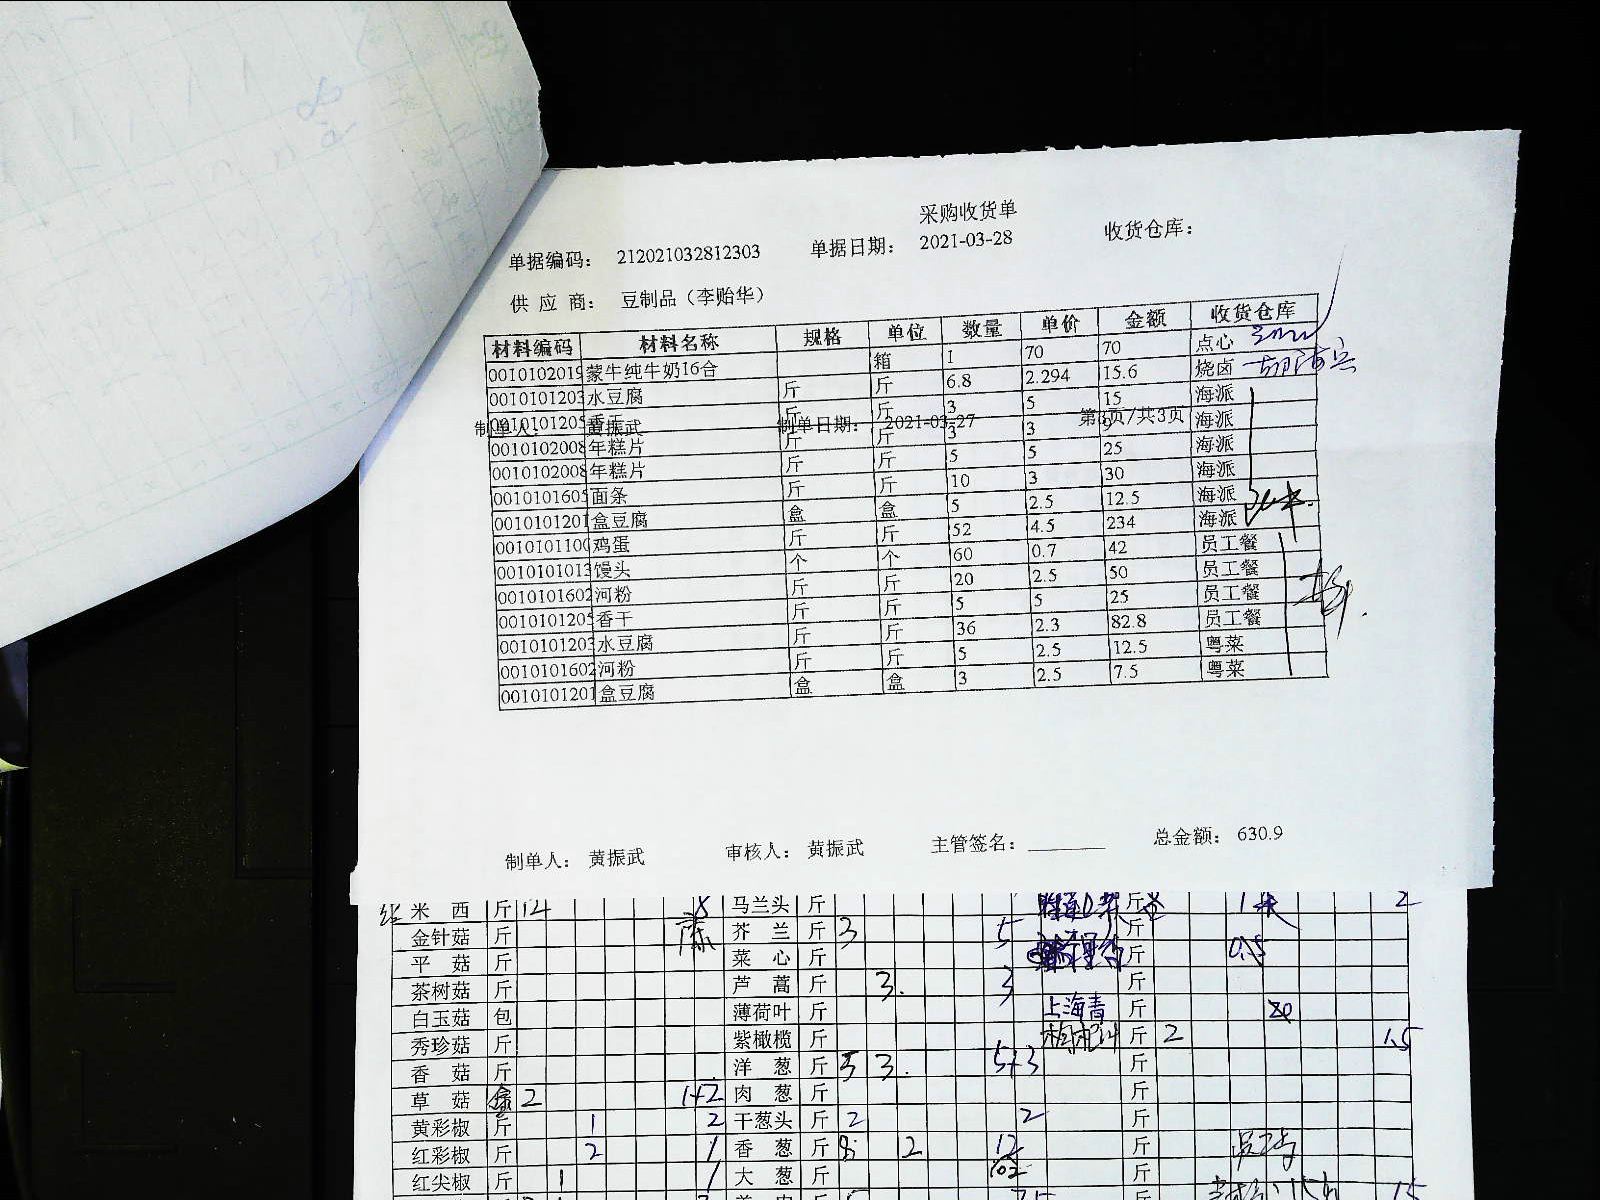 采购收货单
单据编码： 212021032812303 单据日期： 2021-03-28 收货仓库：
供 应 商： 豆制品（李贻华）
材料编码 材料名称 规格 单位 数量 单价 金额 收货仓库
0010102019 蒙牛纯牛奶16合 箱 1 70 70 点心
0010101203 水豆腐 斤 斤 6.8 2.294 15.6 烧卤
0010101205 香干 斤 斤 3 5 15 海派
制单人： 黄振武 制单日期： 2021-03-27 第3页/共3页
0010102008 年糕片 斤 斤 3 3 9 海派
0010102008 年糕片 斤 斤 5 5 25 海派
0010101605 面条 斤 斤 10 3 30 海派
0010101201 盒豆腐 盒 盒 5 2.5 12.5 海派
0010101100 鸡蛋 斤 斤 52 4.5 234 海派
0010101013 馒头 个 个 60 0.7 42 员工餐
0010101602 河粉 斤 斤 20 2.5 50 员工餐
0010101205 香干 斤 斤 5 5 25 员工餐
0010101203 水豆腐 斤 斤 36 2.3 82.8 员工餐
0010101602 河粉 斤 斤 5 2.5 12.5 粤菜
0010101201 盒豆腐 盒 盒 3 2.5 7.5 粤菜
制单人： 黄振武 审核人： 黄振武 主管签名： 总金额： 630.9
米 西 斤 14 8 马兰头 斤 斤 2
金针菇 斤 芥 兰 斤 3 5 斤
平 菇 斤 菜 心 斤 斤 0.5
茶树菇 斤 芦 蒿 斤 3. 3 斤
白玉菇 包 薄荷叶 斤 上海青 斤 20
秀珍菇 斤 紫橄榄 斤 斤 2 1.5
香 菇 斤 洋 葱 斤 5 3. 5+3 斤
草 菇 2 1+2 肉 葱 斤 斤
黄彩椒 斤 1 2 干葱头 斤 2 2 斤
红彩椒 斤 2 1 香 葱 斤 8 2 12 斤
红尖椒 斤 1 1 大 葱 斤 斤